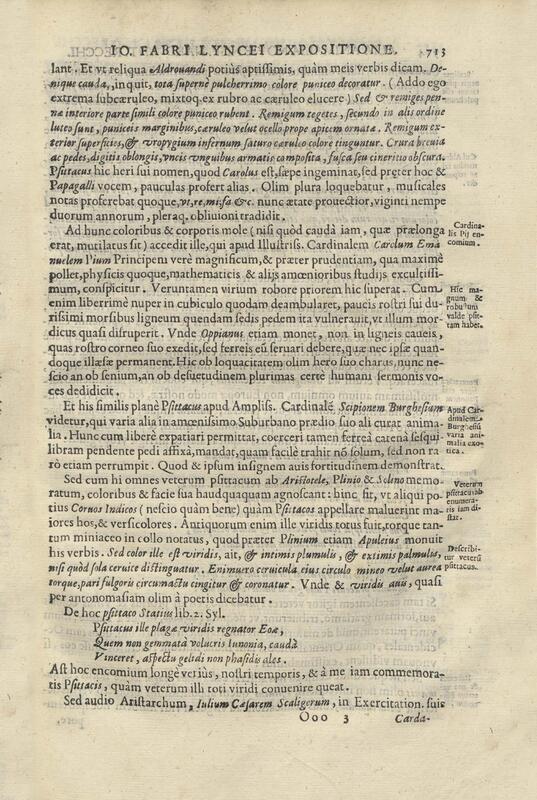 IO. FABRI LYNCEI EXPOSITIONE. 713
lant. Et vt reliqua Aldrouandi potiùs aptissimis, quàm meis verbis dicam. De-
nique cauda, inquit, tota supernè pulcherrimo colore puniceo decoratur. (Addo ego
extrema subcæruleo, mixtoq. ex rubro ac cæruleo elucere) Sed & remiges pen-
næ interiore parte simili colore puniceo rubent. Remigum tegetes, secundo in alis ordine
luteo sunt, puniceis marginibus, cæruleo velut ocello prope apicem ornatæ. Remigum ex-
terior superficies, & vropygium infernum saturo cæruleo colore tinguntur. Crura breuia
ac pedes, digitis oblongis, vncis vnguibus armatis composita, fusca seu cineritio obscura.
Psittacus hic heri sui nomen, quod Carolus est, sæpe ingeminat, sed præter hoc &
Papagalli vocem, pauculas profert alias. Olim plura loquebatur, musicales
notas proferebat quoque, vt, re, mi, fa & c. nunc ætate prouectior, viginti nempe
duorum annorum, pleraq. obliuioni tradidit.
Ad hunc coloribus & corporis mole (nisi quòd cauda iam, quæ prælonga
erat, mutilatus sit) accedit ille, qui apud Illustriss. Cardinalem Carolum Ema
nuelem Pium Principem verè magnificum, & præter prudentiam, qua maximè
pollet, physicis quoque, mathematicis & alijs amœnioribus studijs excultissi-
mum, conspicitur. Veruntamen virium robore priorem hic superat. Cum
enim liberrimè nuper in cubiculo quodam deambularet, paucis rostri sui du-
rissimi morsibus ligneum quendam sedis pedem ita vulnerauit, vt illum mor-
dicus quasi disruperit. Vnde Oppianus etiam monet, non in ligneis caueis,
quas rostro corneo suo exedit, sed ferreis eū seruari debere, quæ nec ipsæ quan-
doque illæsæ permanent. Hic ob loquacitatem olim hero suo charus, nunc ne-
scio an ob senium, an ob desuetudinem plurimas certè humani sermonis vo-
ces dedidicit.
Et his similis planè Psittacus apud Ampliss. Cardinalē Scipionem Burghesium
videtur, qui varia alia in amœnissimo Suburbano prædio suo ali curat anima-
lia. Hunc cum liberè expatiari permittat, coerceri tamen ferrea catena sesqui-
libram pendente pedi affixa, mandat, quam facilè trahit nō solum, sed non ra-
rò etiam perrumpit. Quod & ipsum insignem auis fortitudinem demonstrat.
Sed cum hi omnes veterum psittacum ab Aristotele, Plinio & Solino memo-
ratum, coloribus & facie sua haudquaquam agnoscant: hinc sit, vt aliqui po-
tius Coruos Indicos (nescio quàm bene) quàm Psittacos appellare maluerint ma-
iores hos, & versicolores. Antiquorum enim ille viridis totus fuit, torque tan-
tum miniaceo in collo notatus, quod præter Plinium etiam Apuleius monuit
his verbis. Sed color ille est viridis, ait, & intimis plumulis, & eximis palmulis,
nisi quòd sola ceruice distinguatur. Enimuero ceruicula eius circulo mineo velut aurea
torque, pari fulgoris circumactu cingitur & coronatur. Vnde & viridis auis, quasi
per antonomasiam olim à poetis dicebatur.
De hoc psittaco Statius lib. 2. Syl.
Psittacus ille plagæ viridis regnator Eoæ,
Quem non gemmata volucris Iunonia, cauda
Vinceret, aspectu gelidi non phasidis ales.
Ast hoc encomium longè verius, nostri temporis, & à me iam commemora-
tis Psittacis, quàm veterum illi toti viridi conuenire queat.
Sed audio Aristarchum, Iulium Cæsarem Scaligerum, in Exercitation. suis
Ooo 3 Carda-
Cardina-
lis Pij en-
comium.
Hic ma-
gnum &
robustū
valde psit-
tam habet.
Apud Car-
dinalem
Burghesiū
varia ani-
malia exo-
tica.
Veterum
psittacū ab
enumera-
tis iam di-
stat.
Describi-
tur veterū
psittacus.